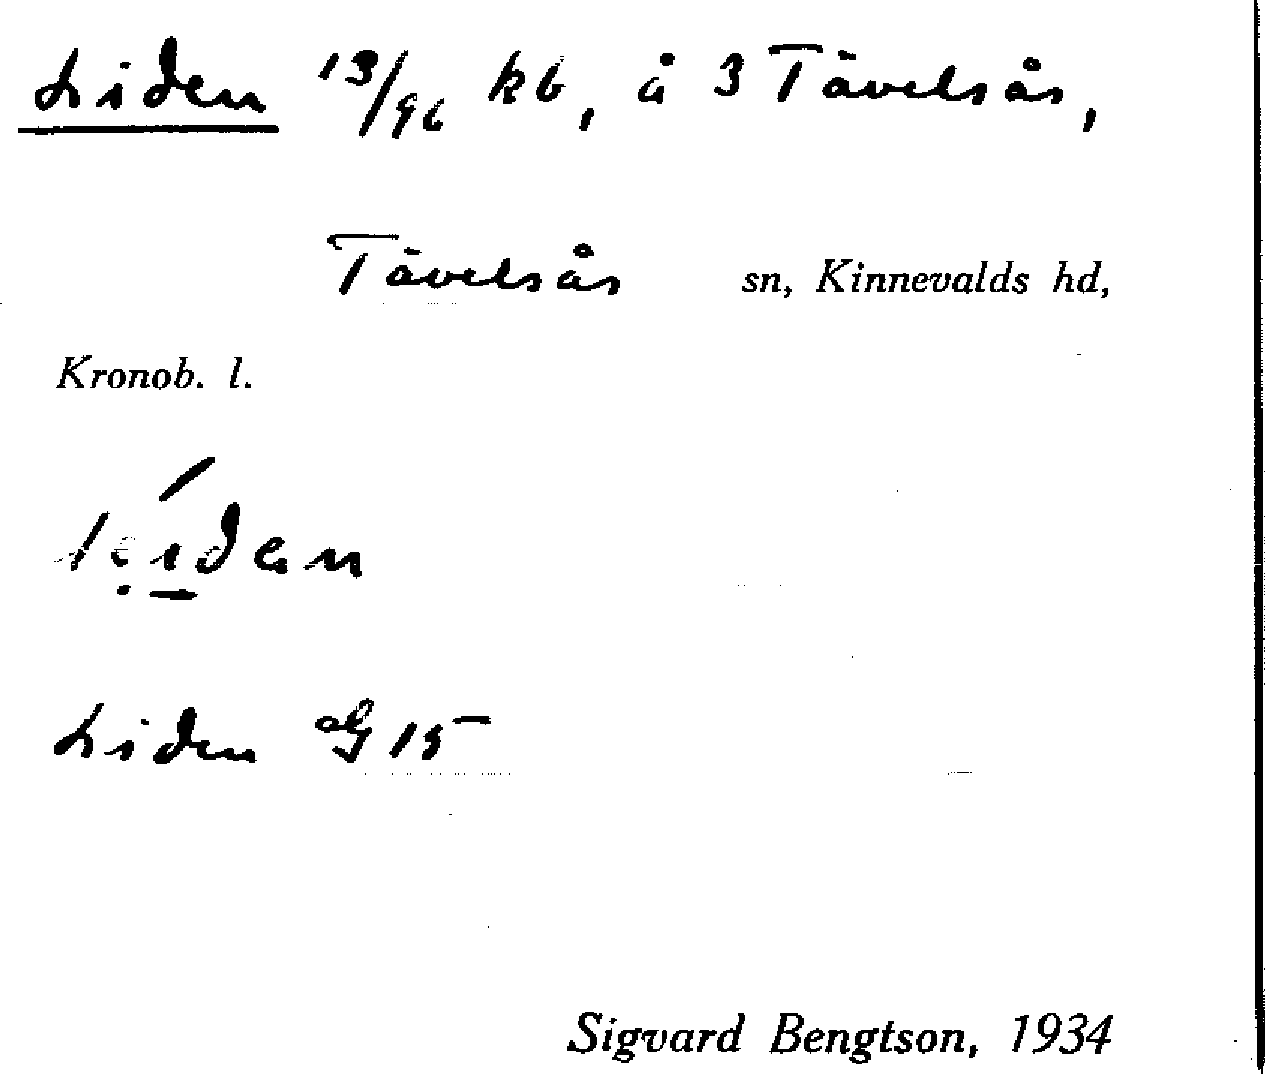 Liden 13/96 kb, å 3 Tävelsås,
Tävelsås sn, Kinnevalds hd,
Kronob. l.
Liden G 15
Sigvard Bengtson, 1934